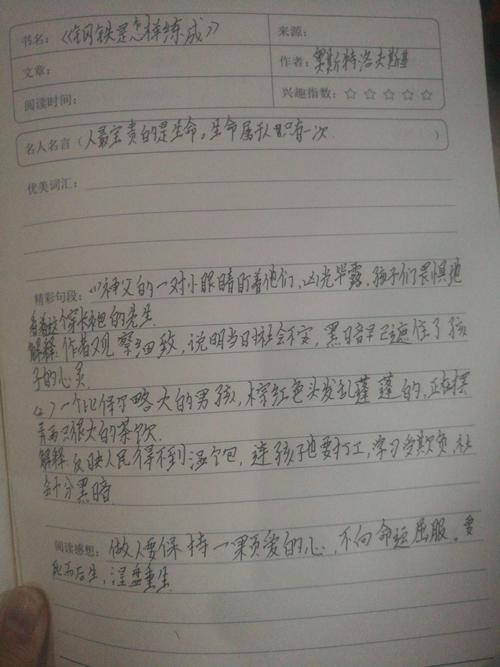 书名：《钢铁是怎样练成》
来源：
文章：
作者：奥斯特洛夫斯基
阅读时间：
兴趣指数：☆ ☆ ☆ ☆ ☆
名人名言（人最宝贵的是生命。生命属于人只有一次 ）
优美词汇：
精彩句段：(1)神父的一对小眼睛盯着他们，凶光毕露。孩子们畏惧地
看着这个穿长袍的先生
解释：作者观察细致，说明当时社会不安，黑暗早已遮住了孩
子的心灵
(2)一个比保尔略大的男孩，棕红色头发乱蓬蓬的，正在摆
弄两只很大的茶炊
解释 反映人民得不到温饱，连孩子也要打工，
会十分黑暗
阅读感想：做人要保持一颗爱的心，不向命运屈服。要
死而后生，涅盘重生